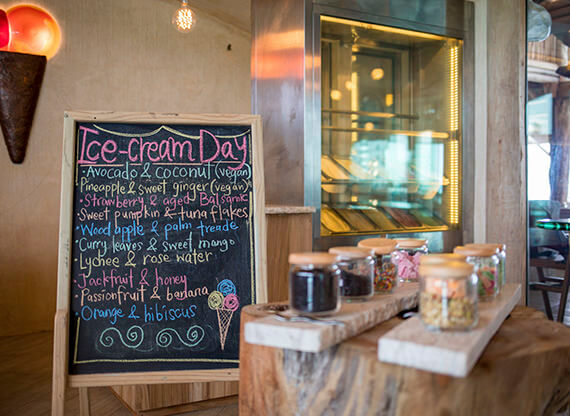 Ice-cream Day
Avocado & coconut (vegan)
Pineapple & sweet ginger (vegan)
Strawberry & aged Balsamic
Sweet pumpkin & tuna flakes
Wood apple & palm treade
Curry leaves & sweet mango
Lychee & rose water
Jackfruit & honey
Passionfruit & banana
Orange & hibiscus